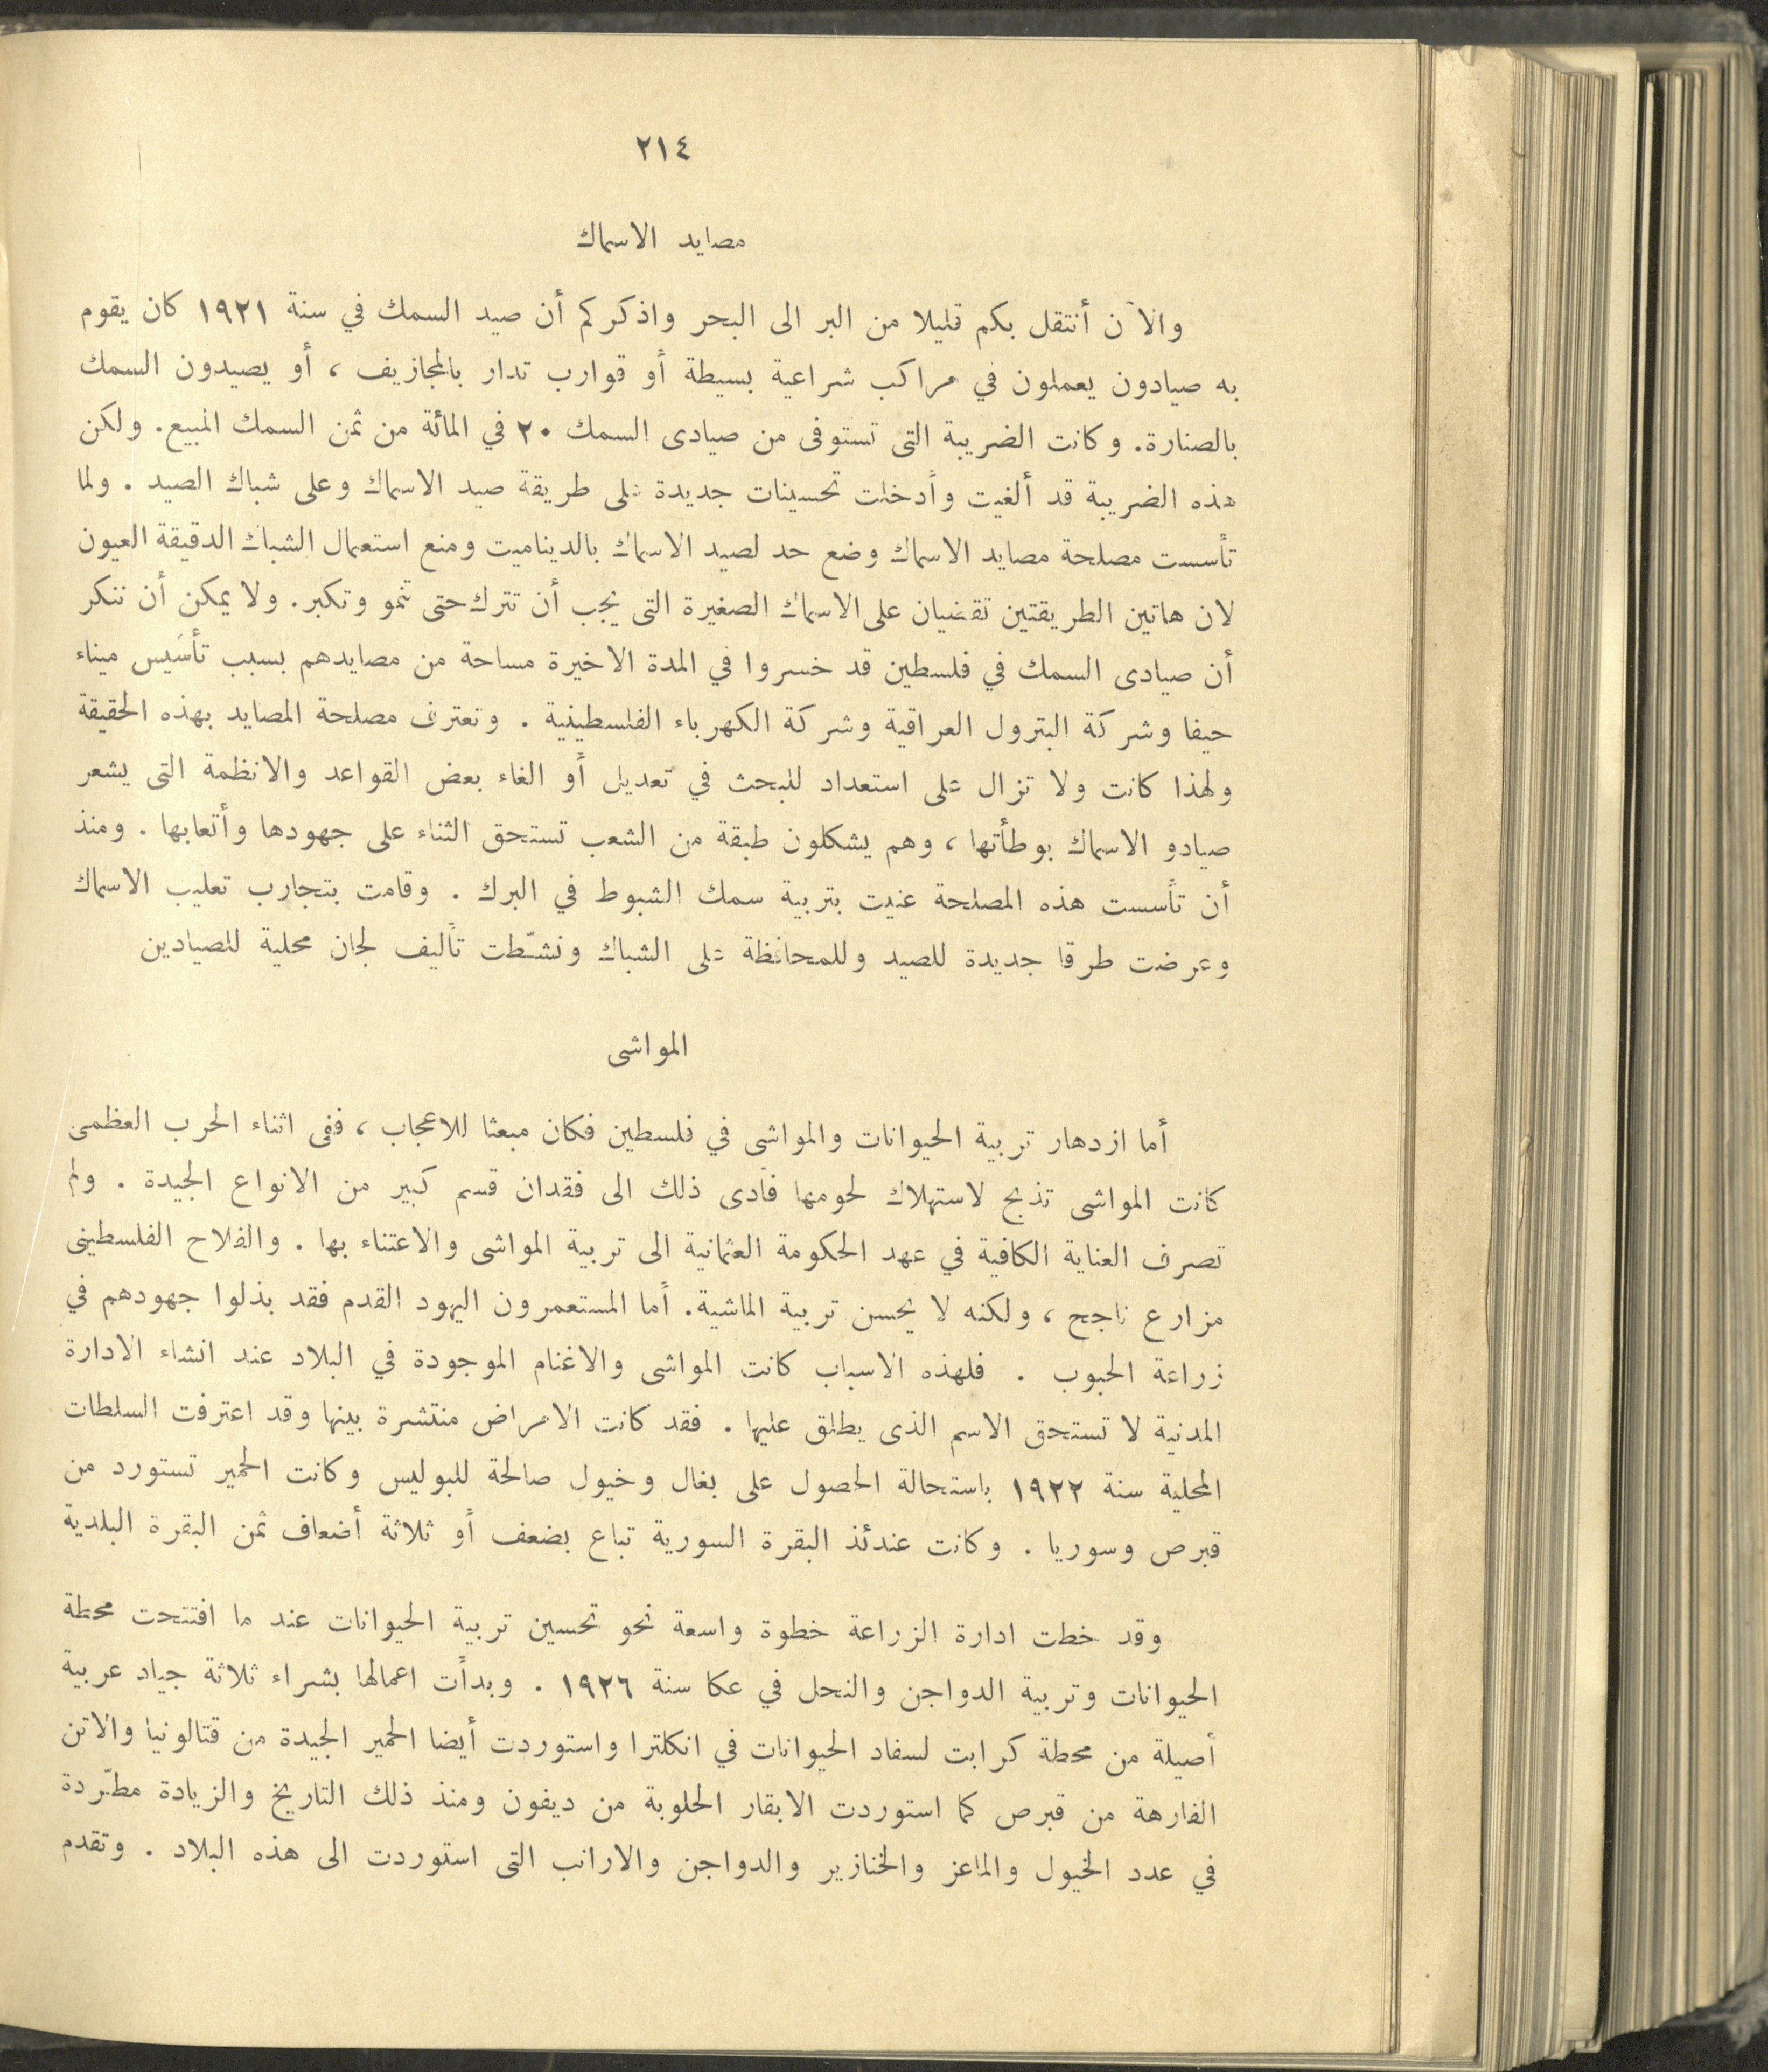 ٢١٤
مصايد الاسماك
والآن أنتقل بكم قليلا من البر الى البحر واذكركم أن صيد السمك في سنة ١٩٢١ كان يقوم
به صيادون يعملون في مراكب شراعية بسيطة أو قوارب تدار بالمجازيف ، أو يصيدون السمك
بالصنارة. وكانت الضريبة التى تستوفى من صيادى السمك ٢٠ في المائة من ثمن السمك المبيع. ولكن
هذه الضريبة قد ألغيت وأدخلت تحسينات جديدة على طريقة صيد الاسماك وعلى شباك الصيد . ولما
تأسست مصلحة مصايد الاسماك وضع حد لصيد الاسماك بالديناميت ومنع استعمال الشباك الدقيقة العيون
لان هاتين الطريقتين تقضيان على الاسماك الصغيرة التى يجب أن تترك حتى تنمو وتكبر. ولا يمكن أن ننكر
أن صيادى السمك في فلسطين قد خسروا في المدة الاخيرة مساحة من مصايدهم بسبب تأسيس ميناء
حيفا وشركة البترول العراقية وشركة الكهرباء الفلسطينية . وتعترف مصلحة المصايد بهذه الحقيقة
ولهذا كانت ولا تزال على استعداد للبحث في تعديل أو الغاء بعض القواعد والانظمة التى يشعر
صيادو الاسماك بوطأتها ، وهم يشكلون طبقة من الشعب تستحق الثناء على جهودها وأتعابها . ومنذ
أن تأسست هذه المصلحة عنيت بتربية سمك الشبوط في البرك . وقامت بتجارب تعليب الاسماك
وعرضت طرقا جديدة للصيد وللمحافظة على الشباك ونشّطت تأليف لجان محلية للصيادين
المواشى
أما ازدهار تربية الحيوانات والمواشى في فلسطين فكان مبعثا للاعجاب ، ففى اثناء الحرب العظمى
كانت المواشى تذبح لاستهلاك لحومها فأدى ذلك الى فقدان قسم كبير من الانواع الجيدة . ولم
تصرف العناية الكافية في عهد الحكومة العثمانية الى تربية المواشى والاعتناء بها . والفلاح الفلسطينى
مزارع ناجح ، ولكنه لا يحسن تربية الماشية. أما المستعمرون اليهود القدم فقد بذلوا جهودهم في
زراعة الحبوب . فلهذه الاسباب كانت المواشى والاغنام الموجودة في البلاد عند انشاء الادارة
المدنية لا تستحق الاسم الذى يطلق عليها . فقد كانت الامراض منتشرة بينها وقد اعترفت السلطات
المحلية سنة ١٩٢٢ باستحالة الحصول على بغال وخيول صالحة للبوليس وكانت الحمير تستورد من
قبرص وسوريا . وكانت عندئذ البقرة السورية تباع بضعف أو ثلاثة أضعاف ثمن البقرة البلدية
وقد خطت ادارة الزراعة خطوة واسعة نحو تحسين تربية الحيوانات عند ما افتتحت محطة
الحيوانات وتربية الدواجن والنحل في عكا سنة ١٩٢٦ . وبدأت اعمالها بشراء ثلاثة جياد عربية
أصيلة من محطة كرابت لسفاد الحيوانات في انكلترا واستوردت أيضا الحمير الجيدة من قتالونيا والاتن
الفارهة من قبرص كما استوردت الابقار الحلوبة من ديفون ومنذ ذلك التاريخ والزيادة مطّردة
في عدد الخيول والماعز والخنازير والدواجن والارانب التى استوردت الى هذه البلاد . وتقدم